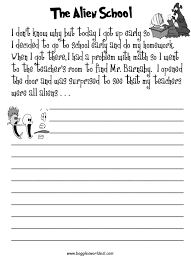 The Alien School
I don't know why but today I got up early so
I decided to go to school early and do my homework.
When I got there, I had a problem with math so I went
to the teacher's room to find Mr. Barnaby. I opened
the door and was surprised to see that my teachers
were all aliens . . .
www.bogglesworldesl.com